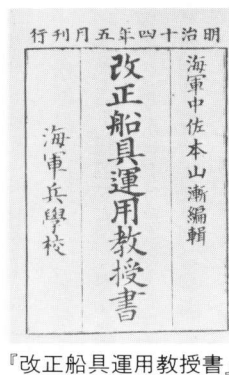 明治十四年五月刊行
海軍中佐本山漸編輯
改正船具運用教授書
海軍兵學校
『改正船具運用教授書』